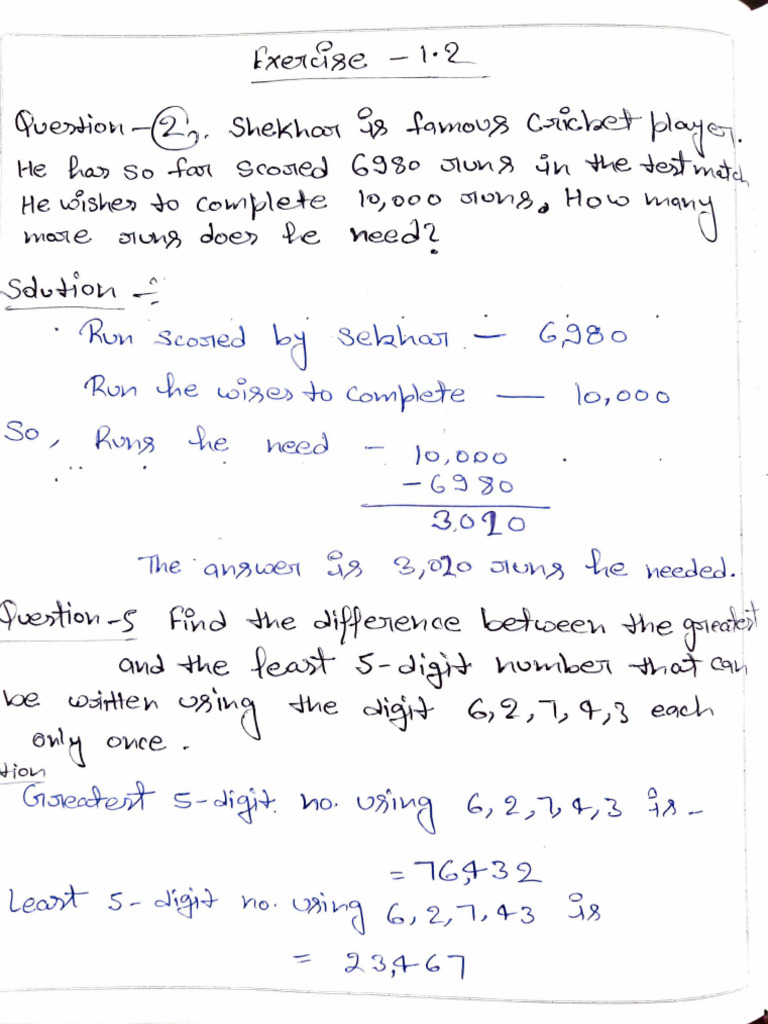 Exercise - 1.2
Question - 2. Shekhar is famous Cricket player.
He has so far scored 6980 runs in the test match
He wishes to complete 10,000 runs. How many
more runs does he need?
Solution -
Run scored by Sekhar - 6,980
Run he wises to complete - 10,000
So, Runs he need - 10,000
- 6980
3,020
The answer is 3,020 runs he needed.
Question - 5 Find the difference between the greatest
and the least 5-digit number that can
be written using the digit 6, 2, 7, 4, 3 each
only once.
tion
Greatest 5-digit no. using 6, 2, 7, 4, 3 is -
= 76,432
Least 5-digit no. using 6, 2, 7, 43 is
= 23,467